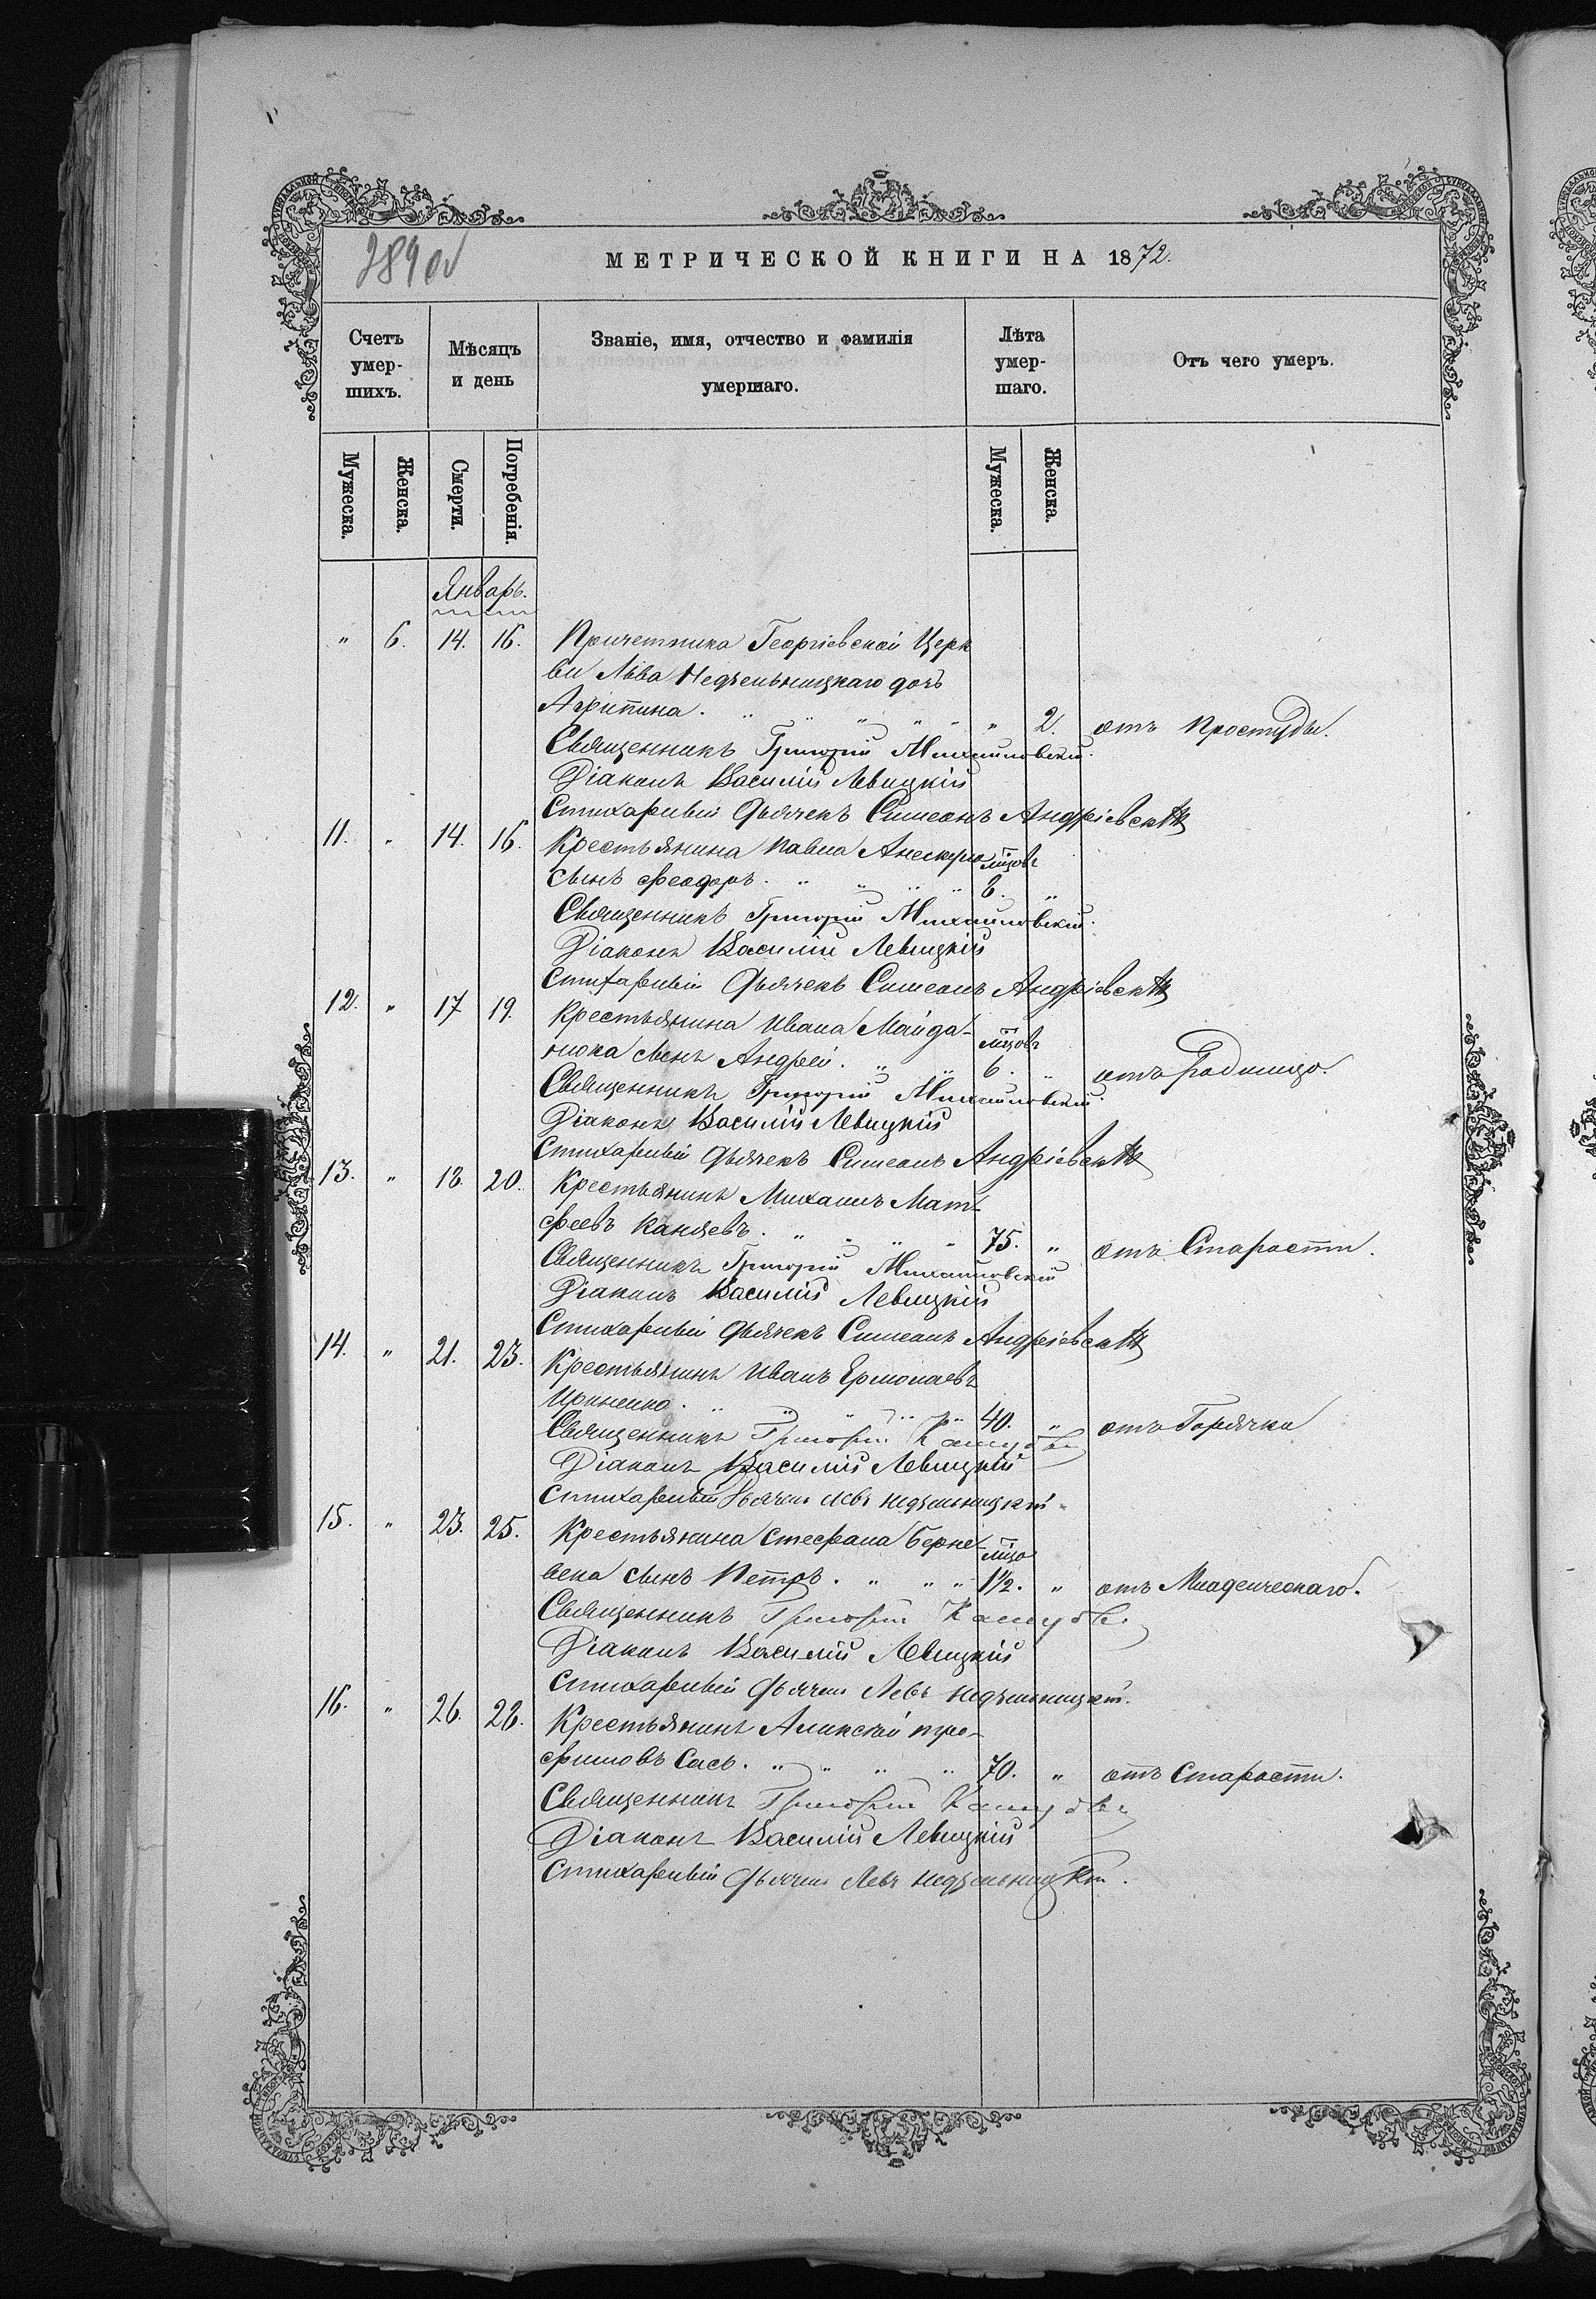 289 об
МЕТРИЧЕСКОЙ КНИГИ НА 1872.
Счетъ умер-шихъ.
Мѣсяцъ и день
Званіе, имя, отчество и фамилія умершаго.
Лѣта умер-шаго.
Отъ чего умеръ.
Мужеска. Женска. Смерти. Погребенія. Мужеска. Женска.
Январь.
" 6. 14. 16. Причетника Георгіевской Церк
ви Льва Недзельницкаго дочь
Агрипина. " 2. отъ Простуды.
Священникъ Григорій Михайловскій.
Діаконъ Василій Левицкій
Стихарный Дьячекъ Симеонъ Андріевскій
11. " 14. 16. Крестьянина Павла мцовъ
сынъ Феодоръ. 6. "
Священникъ Григорій Михайловскій.
Діаконъ Василій Левицкій
Стихарный Дьячекъ Симеонъ Андріевскій
12. " 17 19. Крестьянина Ивана Майда-
нюка сынъ Андрей. мцовъ 6. " отъ Родимца.
Священникъ Григорій Михайловскій.
Діаконъ Василій Левицкій
Стихарный Дьячекъ Симеонъ Андріевскій
13. " 18. 20. Крестьянинъ Михаилъ Мат-
феевъ Каняевъ. 75. " отъ Старости.
Священникъ Григорій Михайловскій
Діаконъ Василій Левицкій
Стихарный Дьячекъ Симеонъ Андріевскій
14. " 21. 23. Крестьянинъ Иванъ Ермолаевъ
40. " отъ Горячки
Священникъ Григорій
Діаконъ Василій Левицкій
Стихарный Дьячекъ Левъ Недзельницкій.
15. " 23. 25. Крестьянина Стефана Берне-
века сынъ Петръ. мцо 1½. " отъ Младенческаго.
Священникъ Григорій
Діаконъ Василій Левицкій
Стихарный Дьячекъ Левъ Недзельницкій.
16. " 26. 28. Крестьянинъ Алексѣй Тро-
фимовъ Сась. 70. " отъ Старости.
Священникъ Григорій
Діаконъ Василій Левицкій
Стихарный Дьячекъ Левъ Недзельницкій.